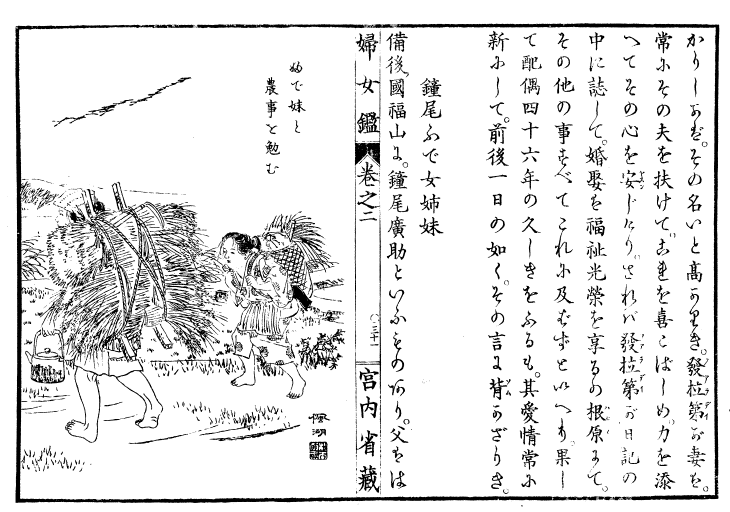 かりしかば。その名いと高かりき。發拉第が妻も。
常にその夫を扶けて。これを喜こばしめ。力を添
へてその心を安じたり。されバ發拉第が日記の
中に誌して。婚娶を福祉光榮を享るの根原にて。
その他の事すべてこれに及ばずといへり。果し
て配偶四十六年の久しきをふるも。其愛情常に
新にして。前後一日の如く。その言に背かざりき。
鐘尾ふで女姉妹
備後國福山に。鐘尾廣助といふものあり。父をは
婦女鑑 卷之二 〇三十一 宮内省藏
ふで妹と
農事を勉む
楓湖